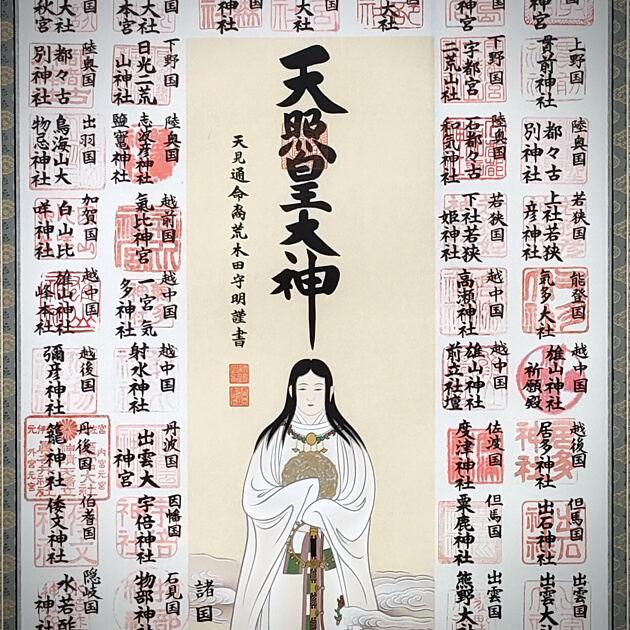 神宮
神宮
神社
大社
大社
大社
本宮
大社
秋宮
上野国
貫前神社
下野国
宇都宮
二荒山社
陸奥国
都々古
別神社
陸奥国
石都々古
和気神社
若狭国
上社若狭
彦神社
若狭国
下社若狭
姫神社
能登国
氣多大社
越中国
高瀬神社
越中国
雄山神社
祈願殿
越中国
雄山神社
前立社壇
越後国
居多神社
佐渡国
度津神社
但馬国
出石神社
但馬国
粟鹿神社
出雲国
出雲大
出雲国
熊野大
天照皇大神
天見通命裔荒木田守明謹書
諸国
下野国
日光二荒
山神社
陸奥国
都々古
別神社
陸奥国
志波彦神社
鹽竈神社
出羽国
鳥海山大
物忌神社
越前国
氣比神宮
加賀国
白山比
咩神社
越中国
一宮氣
多神社
越中国
雄山神社
峰本社
越中国
射水神社
越後国
彌彦神社
丹波国
出雲大
神宮
丹後国
籠神社
因幡国
宇倍神社
伯耆国
倭文神社
石見国
物部神
隠岐国
水若酢
神